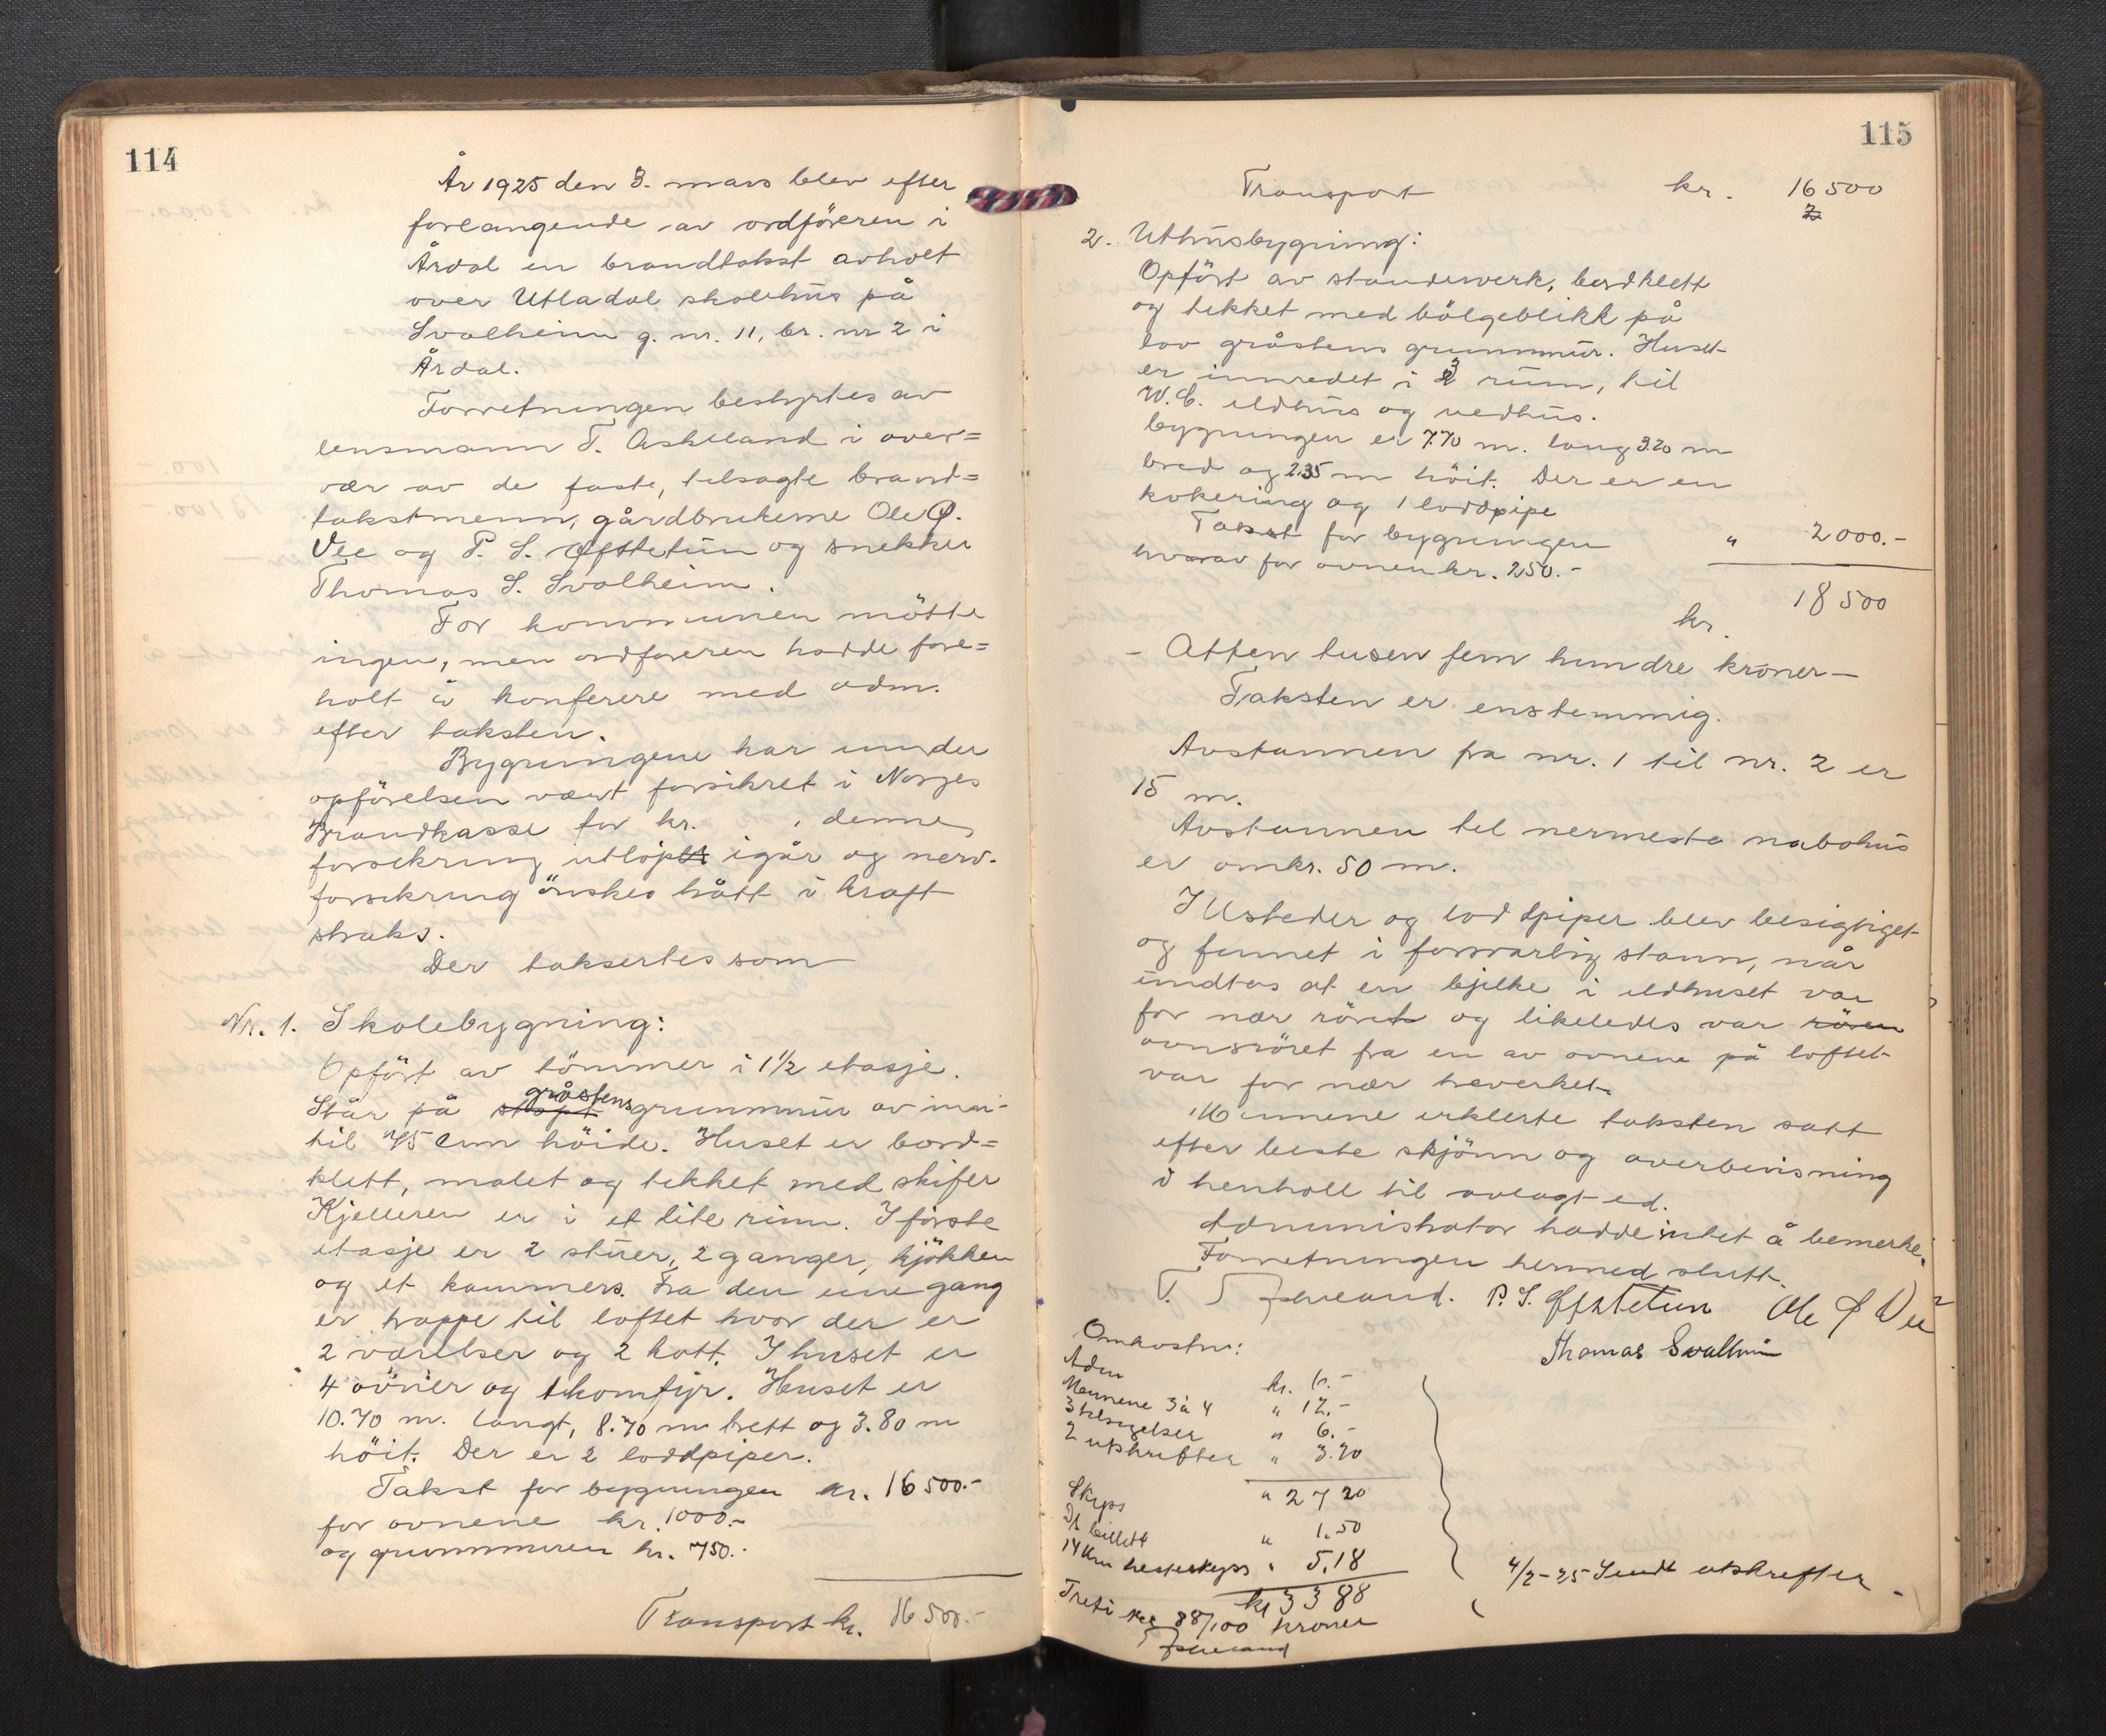 114
År 1925 den 3. mars blev efter
forlangende av ordföreren i
Årdal en brandtakst avholt
over Utladal skolehus på
Svalheim g. nr. 11, br. nr 2 i
Årdal.
Forretningen bestyrtes av
lensmann T. Askeland i over=
vær av de faste, tilsagte brand=
takstmenn, gårdbrukerne Ole Ø.
Vee og P. S. Øfstetun og snekker
Thomas S. Svalheim.
For kommunen mötte
ingen, men ordföreren hadde fore=
holt å konferere med adm.
efter taksten.
Bygningene har under
opförelsen vært forsikret i Norges
Brandkasse for kr. , denne
forsikring utlöp igår og
forsikring önskes sått i kraft
straks.
Der taksertes som
Nr. 1. Skolebygning:
Opfört av tömmer i 1½ etasje.
Står på stöpt gråstens grunnmur av inn-
til 75 cm höide. Huset er bord=
klett, malet og tekket med skifer
Kjelleren er i et lite rum. I förste
etasje er 2 stuer, 2 ganger, kjökken
og et kammers. Fra den ene gang
er trappe til loftet hvor der er
2 værelser og 2 kott. I huset er
4 ovner og 1 komfyr. Huset er
10.70 m. langt, 8.70 m brett og 3.80 m
höit. Der er 2 loddpiper.
Takst for bygningen kr. 16500.-
for ovnene kr. 1000.-
og grunnmuren kr. 750.-
Transport kr. 16500.-
115
Transport kr. 16500
2. Uthusbygning:
Opfört av standerverk, bordklett
og tekket med bölgeblikk på
lav gråstens grunnmur. Huset
er innredet i 3 rum, til
W.C. eldhus og vedhus.
bygningen er 7.70 m. lang 3.20 m
bred og 2.35 m höit. Der er en
kokering og 1 loddpipe
Takst for bygningen " 2000.-
hvorav for ovnen kr. 250.-
kr. 18500
- Atten tusen fem hundre kroner -
Taksten er enstemmig.
Avstannen fra nr. 1 til nr. 2 er
15 m.
Avstannen til nermeste nabohus
er omkr. 50 m.
Ildsteder og loddpiper blev besigtiget
og funnet i forsvarlig stann, når
undtas at en bjelke i eldhuset var
for nær röret og likeledes var rören
ovnsröret fra en av ovnene på loftet
var for nær treverket.
Mennene erklerte taksten satt
efter beste skjönn og overbevisning
i henholl til avlagt ed.
Administrator hadde intet å bemerke.
Forretningen hermed slutt.
T. Askeland. P. S. Øfstetun Ole Ø Vee
Thomas Svalheim
Omkostn:
Adm kr. 6.-
Mennene 3 à 4 " 12.-
3 tilsigelser " 6.-
2 utskrifter " 3.20
" 27 20
Skyss
D/s billett " 1.50
14 km hesteskyss " 5.18
kr 33 88
Treti tre 88/100 kroner
Askeland
4/3-25 Sendt utskrifter